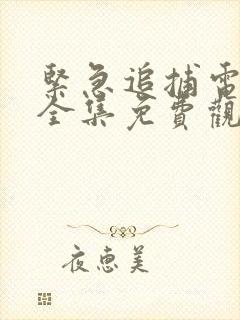 緊急追捕電
全集免費觀
夜惠美